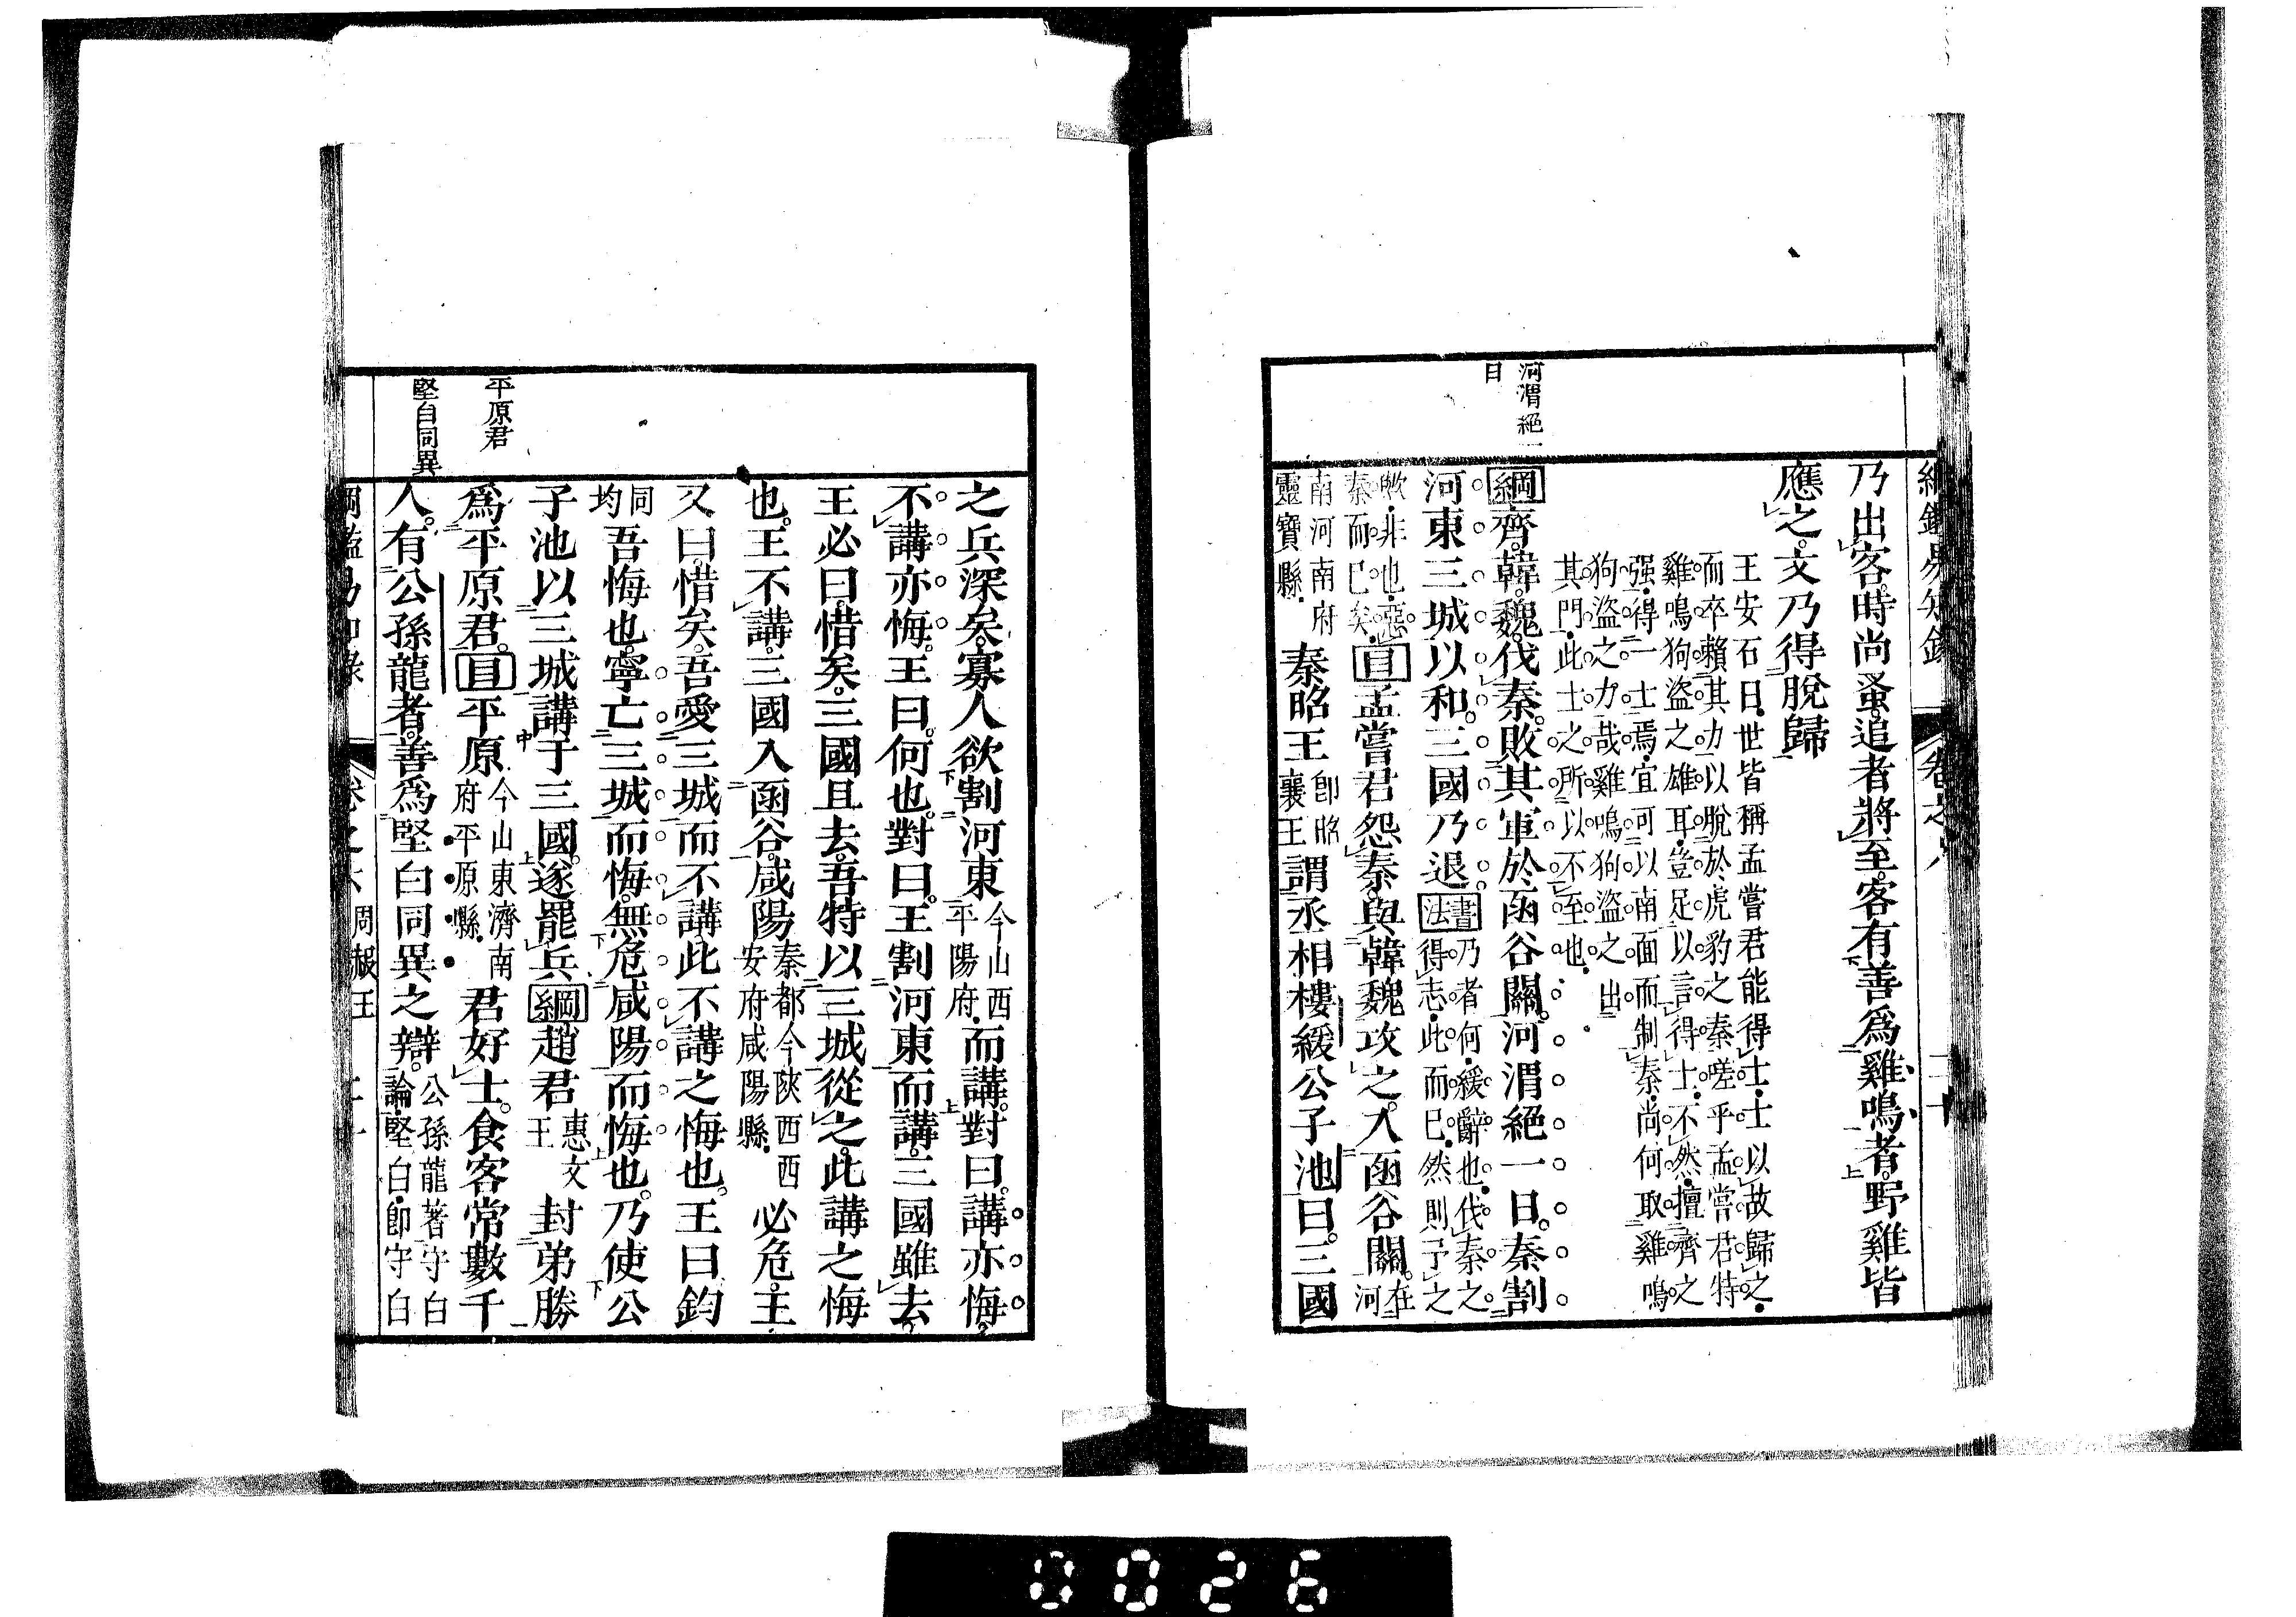 乃出客。時尚蚤。追者將至。客有善爲雞鳴者。野雞皆
應之。文乃得脫歸
王安石曰。世皆稱孟嘗君能得士。士以故歸之。
而卒賴其力。以脫於虎豹之秦。嗟乎。孟嘗君特
雞鳴狗盜之雄耳。豈足以言得士。不然。擅齊之
强。得一士焉。宜可以南面而制秦。尚何取雞鳴
狗盜之力哉。雞鳴狗盜之出
其門。此士之所以不至也。
河渭絕一
日
綱齊韓魏伐秦。敗其軍於函谷關。河渭絕一日。秦割
河東三城以和。三國乃退。書法乃者何。緩辭也。伐秦之
得志。此而已。然則予之
歟。非也。惡
秦而已矣。目孟嘗君怨秦。與韓魏攻之。入函谷關。在河
南河南府
靈寶縣。秦昭王卽昭襄王謂丞相樓緩公子池曰。三國
之兵深矣。寡人欲割河東今山西平陽府。而講。對曰。講亦悔。
不講亦悔。王曰。何也。對曰。王割河東而講。三國雖去。
王必曰。惜矣。三國且去。吾特以三城從之。此講之悔
也。王不講。三國入函谷。咸陽秦都今陝西西安府咸陽縣。必危。王
又曰。惜矣。吾愛三城而不講。此不講之悔也。王曰。鈞
同均吾悔也。寧亡三城而悔。無危咸陽而悔也。乃使公
子池以三城講于三國。遂罷兵。綱趙君惠文王封弟勝
平原君
爲平原君。目平原今山東濟南府平原縣。君好士。食客常數千
堅白同異
人。有公孫龍者。善爲堅白同異之辯。公孫龍著守白論。堅白。卽守白
周赧王